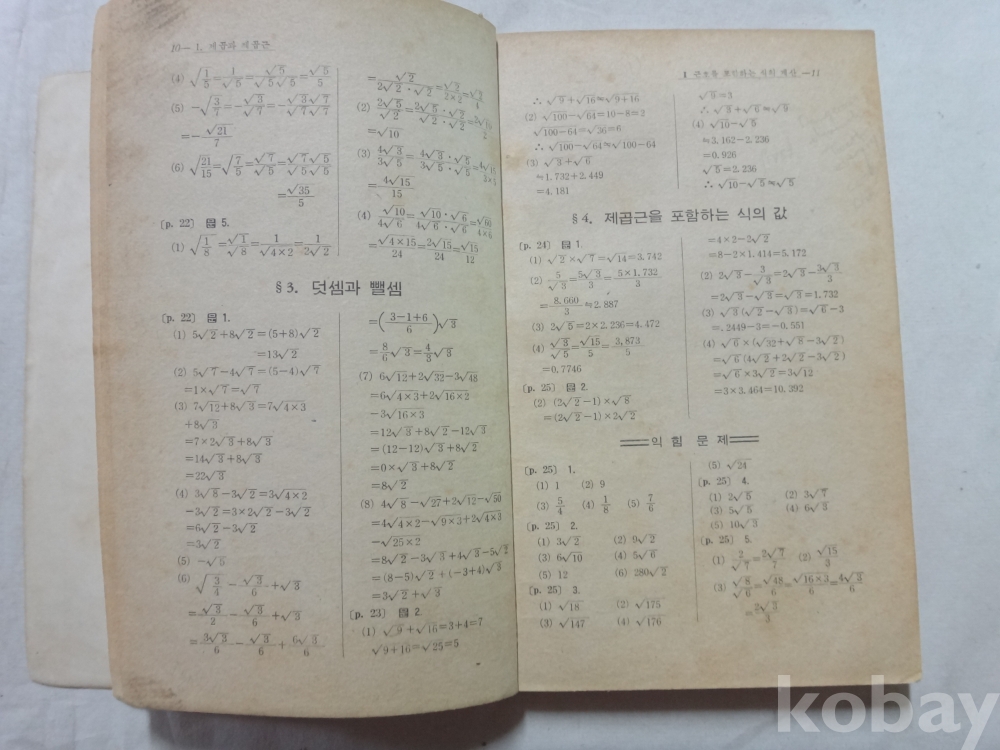 10— 1. 제곱과 제곱근
(4) √(1/5)=1/√5=√5/(√5√5)=√5/5
(5) −√(3/7)=−√3/√7=−√3√7/(√7√7)
=−√21/7
(6) √(21/15)=√(7/5)=√7/√5=√7√5/(√5√5)
=√35/5
[p. 22] 문 5.
(1) √(1/8)=√1/√8=1/√(4×2)=1/(2√2)
=√2/(2√2·√2)=√2/(2×2)=√2/4
(2) 2√5/√2=2√5·√2/(√2·√2)=2√10/2
=√10
(3) 4√3/(3√5)=4√3·√5/(3√5·√5)=4√15/(3×5)
=4√15/15
(4) √10/(4√6)=√10·√6/(4√6·√6)=√60/(4×6)
=√(4×15)/24=2√15/24=√15/12
§3. 덧셈과 뺄셈
[p. 22] 문 1.
(1) 5√2+8√2=(5+8)√2
=13√2
(2) 5√7−4√7=(5−4)√7
=1×√7=√7
(3) 7√12+8√3=7√(4×3)
+8√3
=7×2√3+8√3
=14√3+8√3
=22√3
(4) 3√8−3√2=3√(4×2)
−3√2=3×2√2−3√2
=6√2−3√2
=3√2
(5) −√5
(6) √(3/4)−√3/6+√3
=√3/2−√3/6+√3
=3√3/6−√3/6+6√3/6
=((3−1+6)/6)√3
=8/6√3=4/3√3
(7) 6√12+2√32−3√48
=6√(4×3)+2√(16×2)
−3√(16×3)
=12√3+8√2−12√3
=(12−12)√3+8√2
=0×√3+8√2
=8√2
(8) 4√8−√27+2√12−√50
=4√(4×2)−√(9×3)+2√(4×3)
−√(25×2)
=8√2−3√3+4√3−5√2
=(8−5)√2+(−3+4)√3
=3√2+√3
[p. 23] 문 2.
(1) √9+√16=3+4=7
√(9+16)=√25=5
—11
∴ √9+√16≠√(9+16)
(2) √100−√64=10−8=2
√(100−64)=√36=6
∴ √100−√64≠√(100−64)
(3) √3+√6
≒1.732+2.449
=4.181
√9=3
∴ √3+√6≠√9
(4) √10−√5
≒3.162−2.236
=0.926
√5=2.236
∴ √10−√5≠√5
§4. 제곱근을 포함하는 식의 값
[p. 24] 문 1.
(1) √2×√7=√14=3.742
(2) 5/√3=5√3/3=5×1.732/3
=8.660/3≒2.887
(3) 2√5=2×2.236=4.472
(4) √3/√5=√15/5=3,873/5
=0,7746
[p. 25] 문 2.
(2) (2√2−1)×√8
=(2√2−1)×2√2
=4×2−2√2
=8−2×1.414=5.172
(2) 2√3−3/√3=2√3−3√3/3
=2√3−√3=√3=1.732
(3) √3(√2−√3)=√6−3
=.2449−3=−0.551
(4) √6×(√32+√8−3√2)
=√6(4√2+2√2−3√2)
=√6×3√2=3√12
=3×3.464=10.392
익힘 문제
[p. 25] 1.
(1) 1 (2) 9
(3) 5/4 (4) 1/8 (5) 7/6
[p. 25] 2.
(1) 3√2 (2) 9√2
(3) 6√10 (4) 5√6
(5) 12 (6) 280√2
[p. 25] 3.
(1) √18 (2) √175
(3) √147 (4) √176
(5) √24
[p. 25] 4.
(1) 2√5 (2) 3√7
(3) 5√5 (4) 6√3
(5) 10√3
[p. 25] 5.
(1) 2/√7=2√7/7 (2) √15/3
(3) √8/√6=√48/6=√(16×3)/6=4√3/6
=2√3/3
kobay